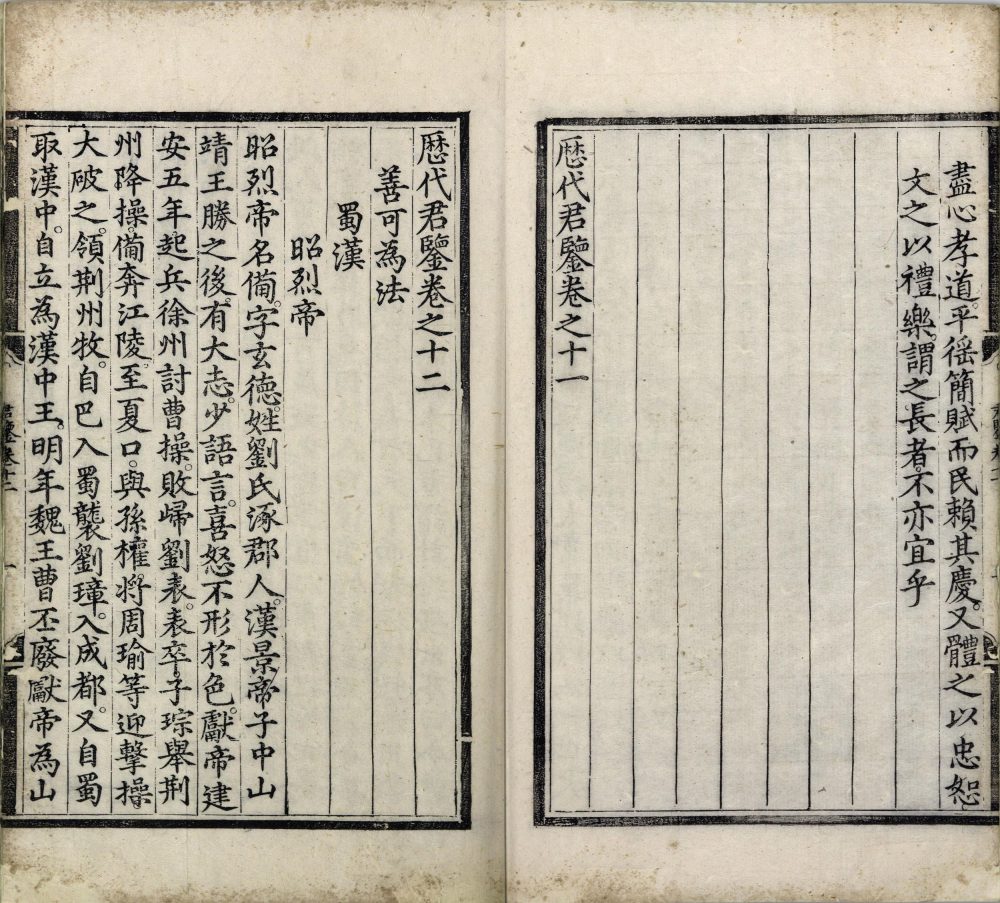 盡心孝道。平徭簡賦而民賴其慶。又體之以忠恕
文之以禮樂。謂之長者。不亦宜乎
歷代君鑒卷之十一
歷代君鑒卷之十二
善可為法
蜀漢
昭烈帝
昭烈帝名備。字玄德。姓劉氏涿郡人。漢景帝子中山
靖王勝之後。有大志。少語言。喜怒不形於色。獻帝建
安五年起兵徐州討曹操。敗歸劉表。表卒。子琮舉荆
州降操。備奔江陵。至夏口。與孫權將周瑜等迎擊操
大破之。領荆州牧。自巴入蜀襲劉璋。入成都。又自蜀
取漢中。自立為漢中王。明年魏王曹丕廢獻帝為山
君鑒卷十二